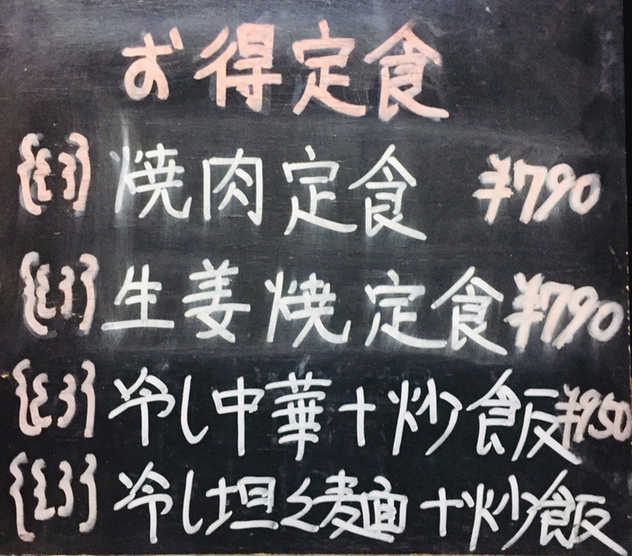 お得定食
焼肉定食 ¥790
生姜焼定食 ¥790
冷し中華+炒飯 ¥950
冷し坦々麺+炒飯